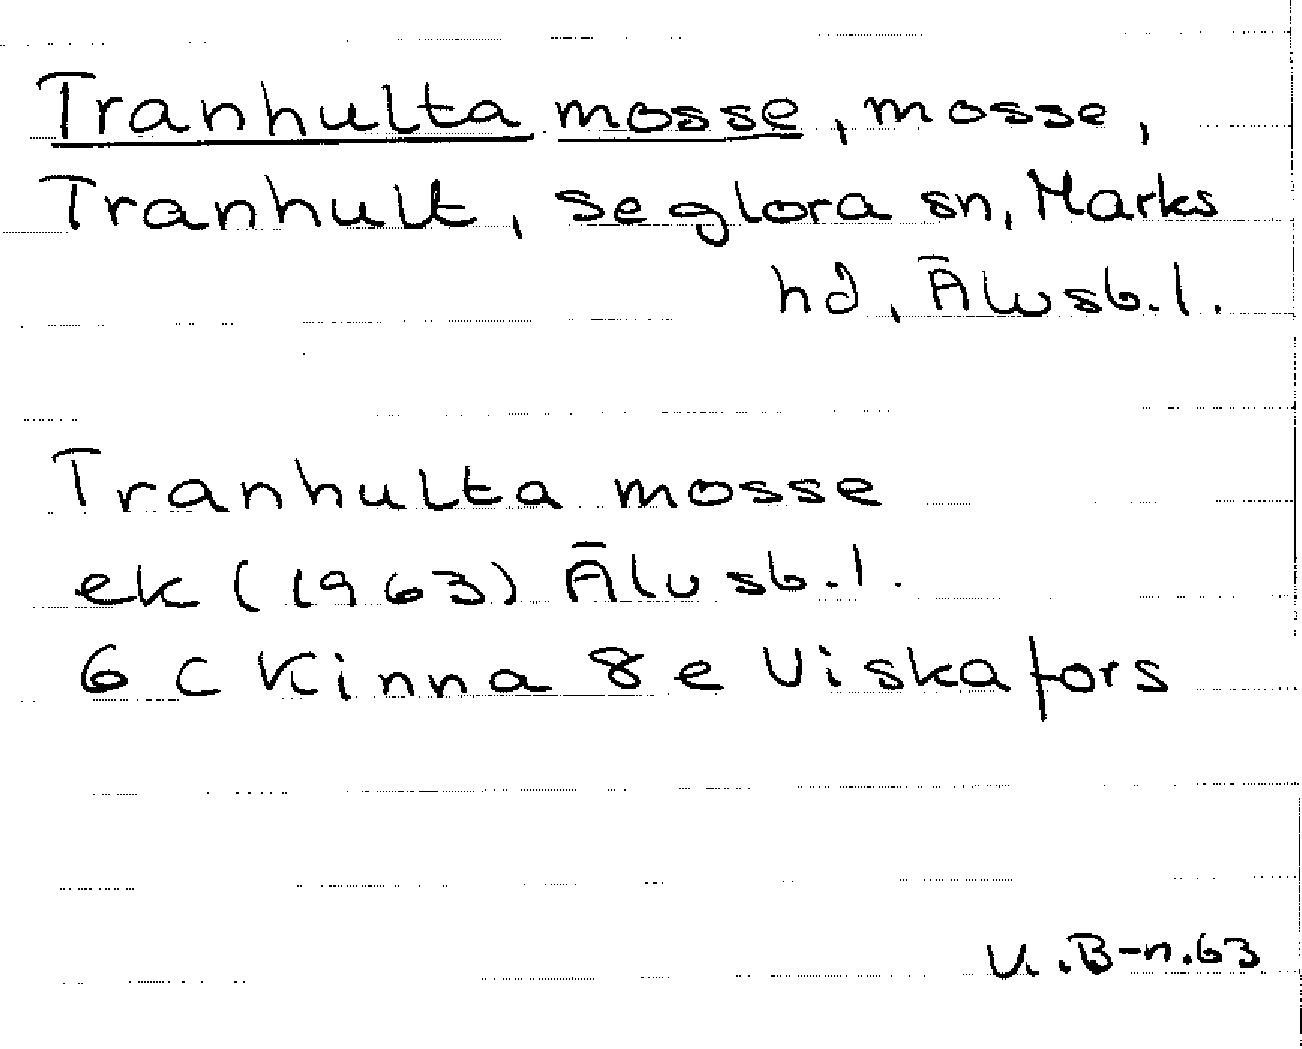 Tranhulta mosse, mosse,
Tranhult, Seglora sn, Marks
hd, Älvsb. l.
Tranhulta mosse
ek (1963) Älvsb. l.
6 C Kinna 8 e Viskafors
U.B-n.63